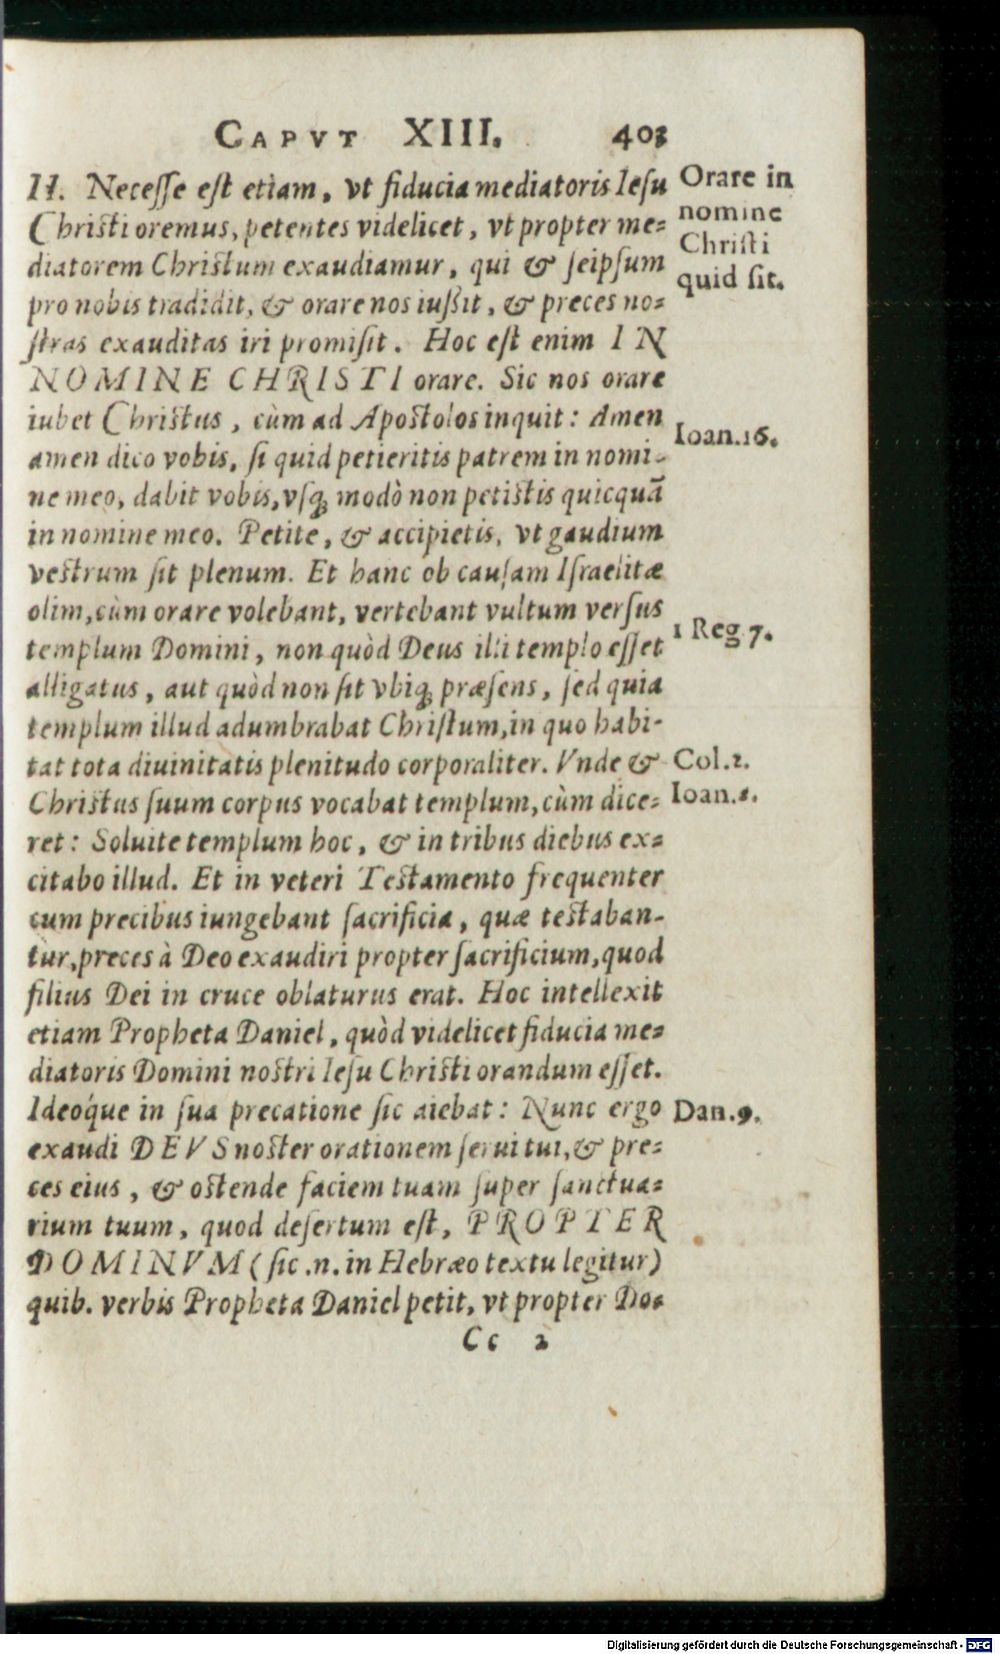 CAPVT XIII. 403
II. Necesse est etiam, vt fiducia mediatoris Iesu
Christi oremus, petentes videlicet, vt propter me=
diatorem Christum exaudiamur, qui & seipsum
pro nobis tradidit, & orare nos iußit, & preces no=
stras exauditas iri promisit. Hoc est enim IN
NOMINE CHRISTI orare. Sic nos orare
iubet Christus, cùm ad Apostolos inquit: Amen
amen dico vobis, si quid petieritis patrem in nomi-
ne meo, dabit vobis, vsq; modò non petistis quicquã
in nomine meo. Petite, & accipietis, vt gaudium
vestrum sit plenum. Et hanc ob causam Israelitæ
olim, cùm orare volebant, vertebant vultum versus
templum Domini, non quòd Deus illi templo esset
alligatus, aut quòd non sit vbiq; præsens, sed quia
templum illud adumbrabat Christum, in quo habi-
tat tota diuinitatis plenitudo corporaliter. Vnde &
Christus suum corpus vocabat templum, cùm dice=
ret: Soluite templum hoc, & in tribus diebus ex=
citabo illud. Et in veteri Testamento frequenter
cum precibus iungebant sacrificia, quæ testaban-
tur, preces à Deo exaudiri propter sacrificium, quod
filius Dei in cruce oblaturus erat. Hoc intellexit
etiam Propheta Daniel, quòd videlicet fiducia me=
diatoris Domini nostri Iesu Christi orandum esset.
Ideoq́ue in sua precatione sic aiebat: Nunc ergo
exaudi DEVS noster orationem serui tui, & pre=
ces eius, & ostende faciem tuam super sanctua=
rium tuum, quod desertum est, PROPTER
DOMINVM (sic .n. in Hebræo textu legitur)
quib. verbis Propheta Daniel petit, vt propter Do=
Cc 2
Orare in
nomine
Christi
quid sit.
Ioan.16.
1 Reg 7.
Col.2.
Ioan.2.
Dan.9.
Digitalisierung gefördert durch die Deutsche Forschungsgemeinschaft - DFG